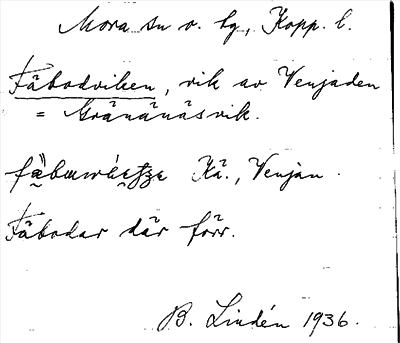 Mora sn o. hg, Kopp. l.
Fäbodviken, vik av Venjaden
= Gränänäsvik.
Kä., Venjan.
Fäbodar där förr.
B. Lindén 1936.